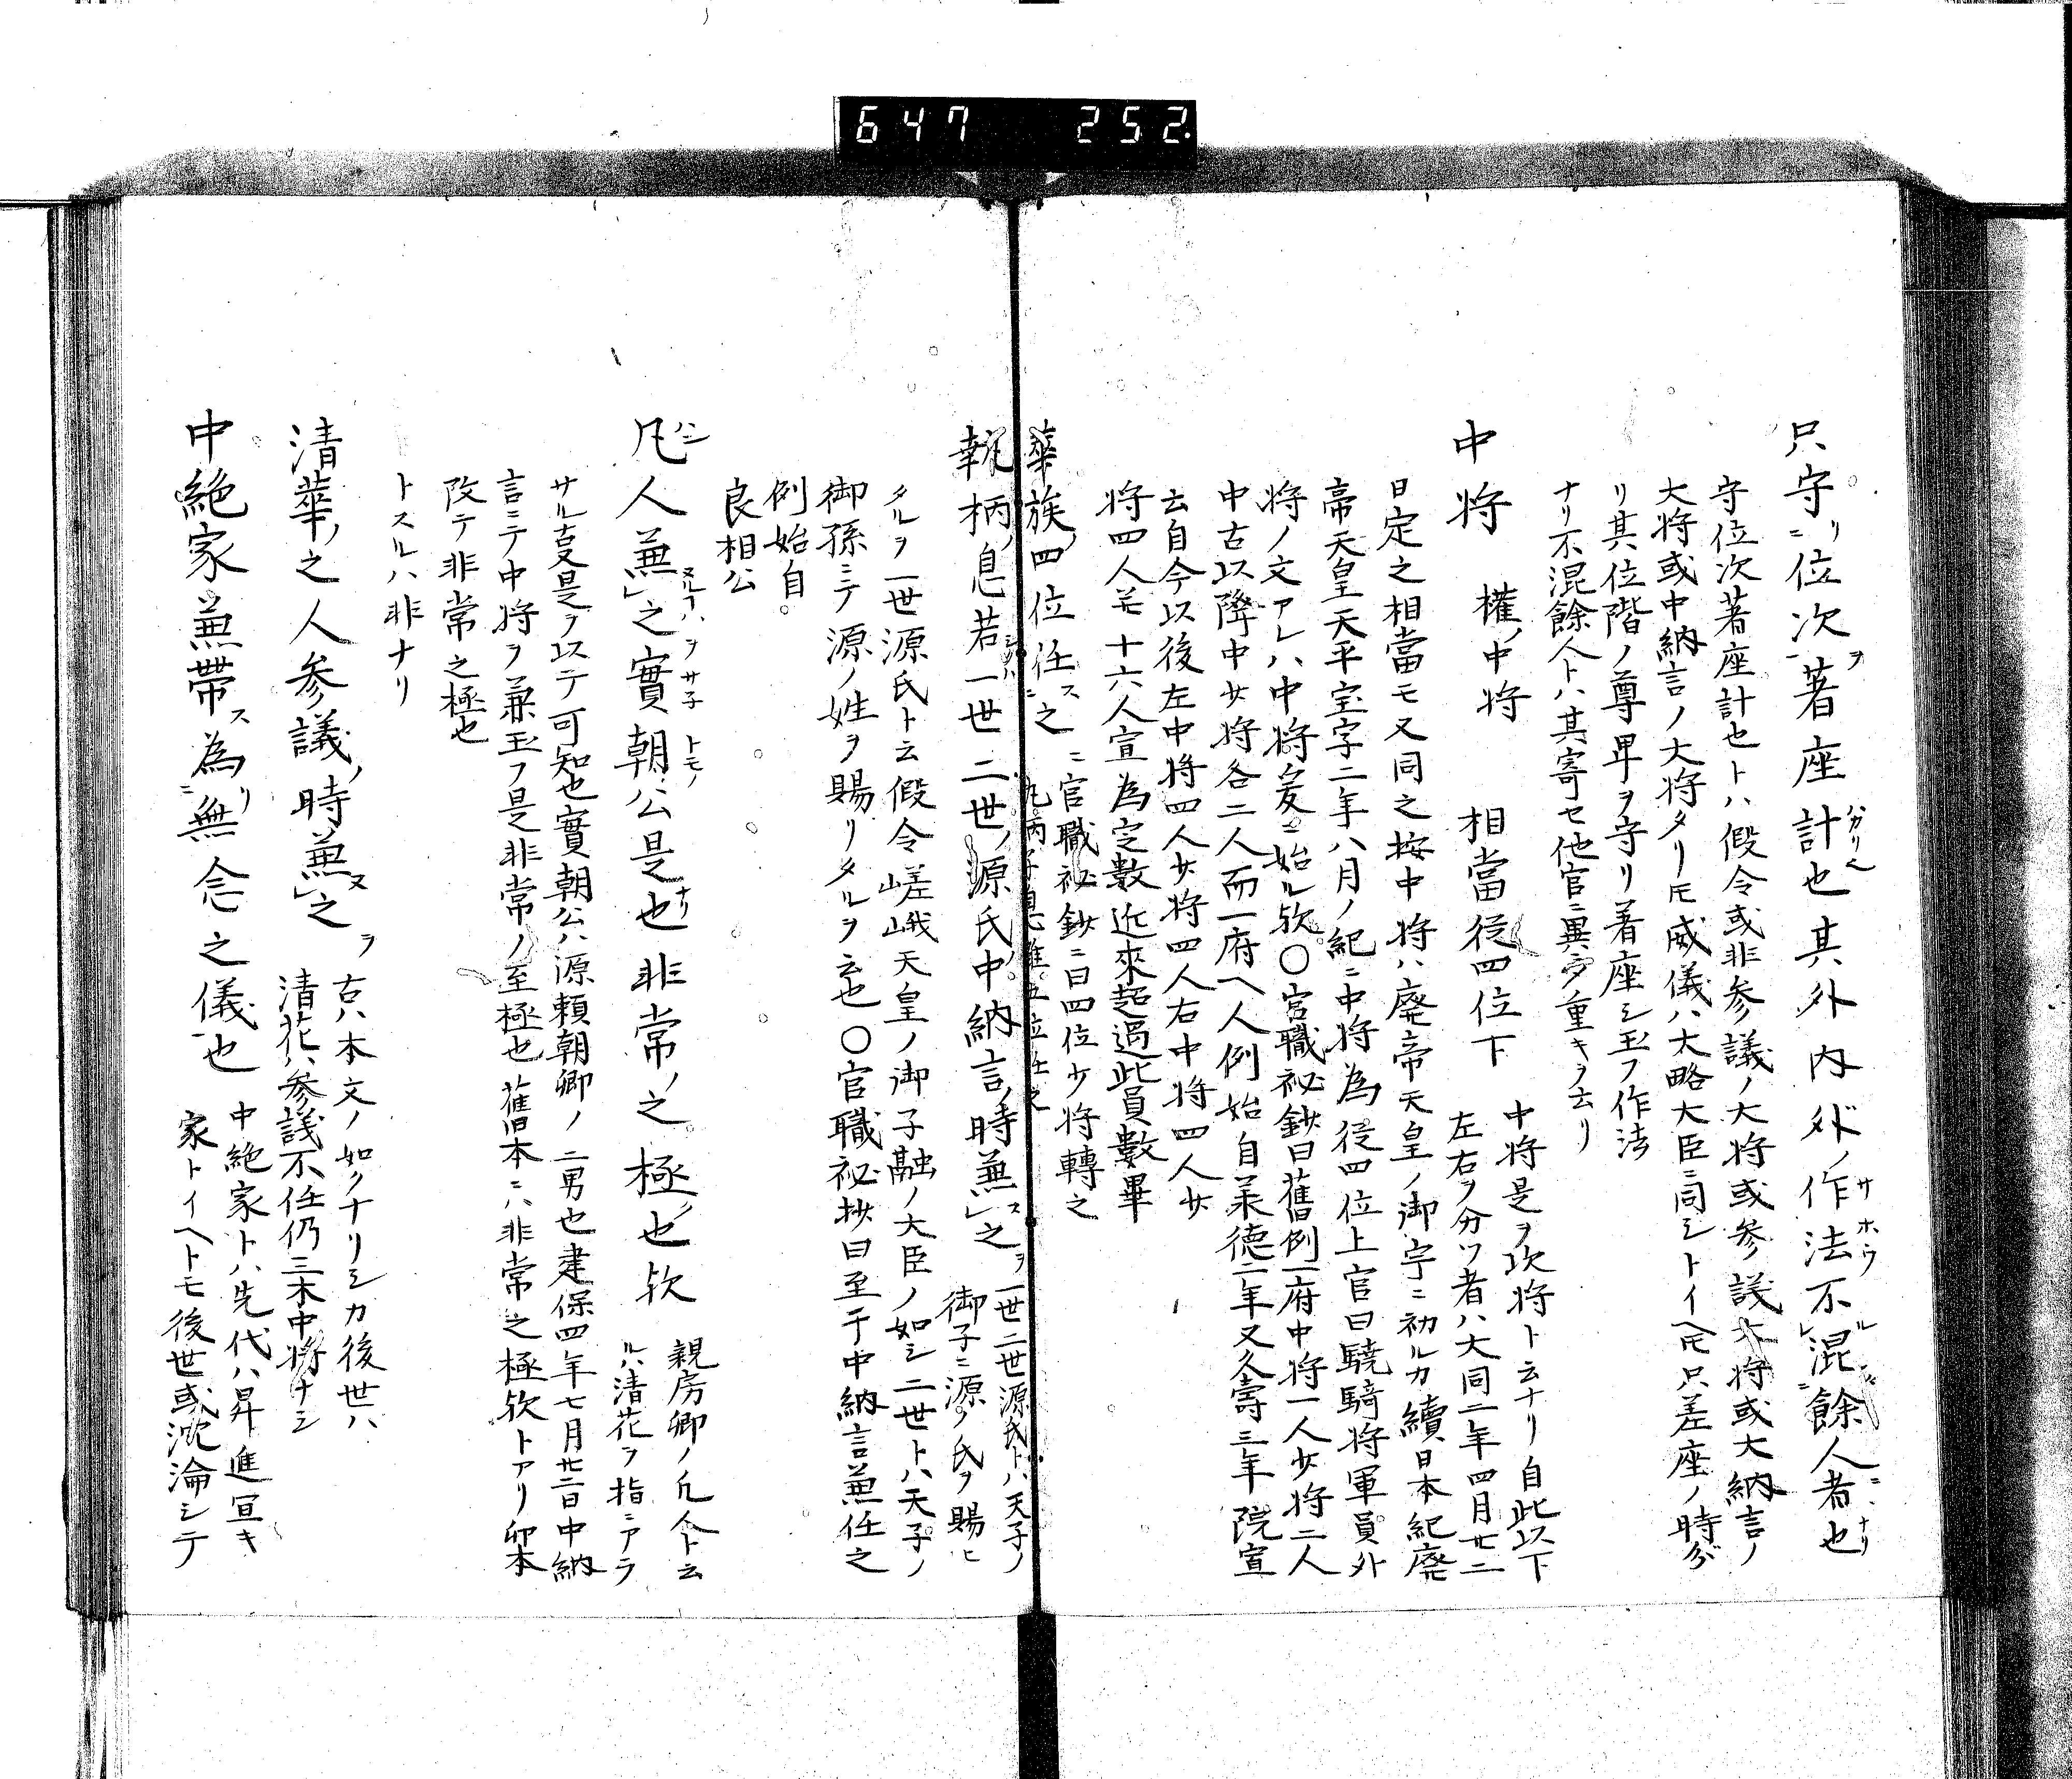 647 252
只守リニ位次ヲ著座計也其外内外ノ作法不混餘人ニ者也
守位次著座計也トハ假令或非参議ノ大将或参議大将或大納言ノ
大将或中納言ノ大将タリ𪜈威儀ハ大略大臣ニ同シトイヘ𪜈只差座ノ時分
リ其位階ノ尊卑ヲ守リ著座シ玉フ作法
ナリ不混餘人トハ其寄セ他官ニ異ニ重キヲ云リ
中将 權ノ中将 相當従四位下
中将是ヲ次将ト云ナリ自此以下
左右ヲ分ツ者ハ大同二年四月廿二
日定之相當モ又同之按中将ハ廢帝天皇ノ御宇ニ初ルカ續日本紀廢
帝天皇天平宝字二年八月ノ紀ニ中将為従四位上官曰驍騎将軍員外
将ノ文アレハ中将爰ニ始ル欤〇官職祕鈔曰舊例一府中将一人少将二人
中古以降中少将各二人而一府八人例始自承徳二年又久壽三年院宣
云自今以後左中将四人少将四人右中将四人少
将四人并十六人宣為定數近來超過此員數畢
華族ノ四位任ス之
ニ官職祕鈔ニ曰四位少将轉之
執柄ノ息若一世二世ノ源氏中納言ノ時兼ス之ヲ
一世二世源氏トハ天子ノ
御子ニ源ノ氏ヲ賜ヒ
タルヲ一世源氏ト云假令嵯峨天皇ノ御子融ノ大臣ノ如シ二世トハ天子ノ
御孫ニテ源ノ姓ヲ賜リタルヲ云也〇官職祕抄曰至于中納言兼任之
例始自
良相公
凡人兼之實朝公是也非常ノ之極也欤
親房卿ノ凡人ト云
ルハ清花ヲ指ニアラ
サル叓是ヲ以テ可知也實朝公ハ源頼朝卿ノ二男也建保四年七月廿二日中納
言ニテ中将ヲ兼玉フ是非常ノ至極也舊本ニハ非常之極欤トアリ卯本
改テ非常之極也
トスルハ非ナリ
清華ノ之人参議ノ時兼之ヲ
古ハ本文ノ如クナリシカ後世ハ
清花ハ参議不任仍三木中将ナシ
中絶家兼帯ス為リニ無念之儀也
中絶家トハ先代ハ昇進宣キ
家トイヘトモ後世或沈淪シテ